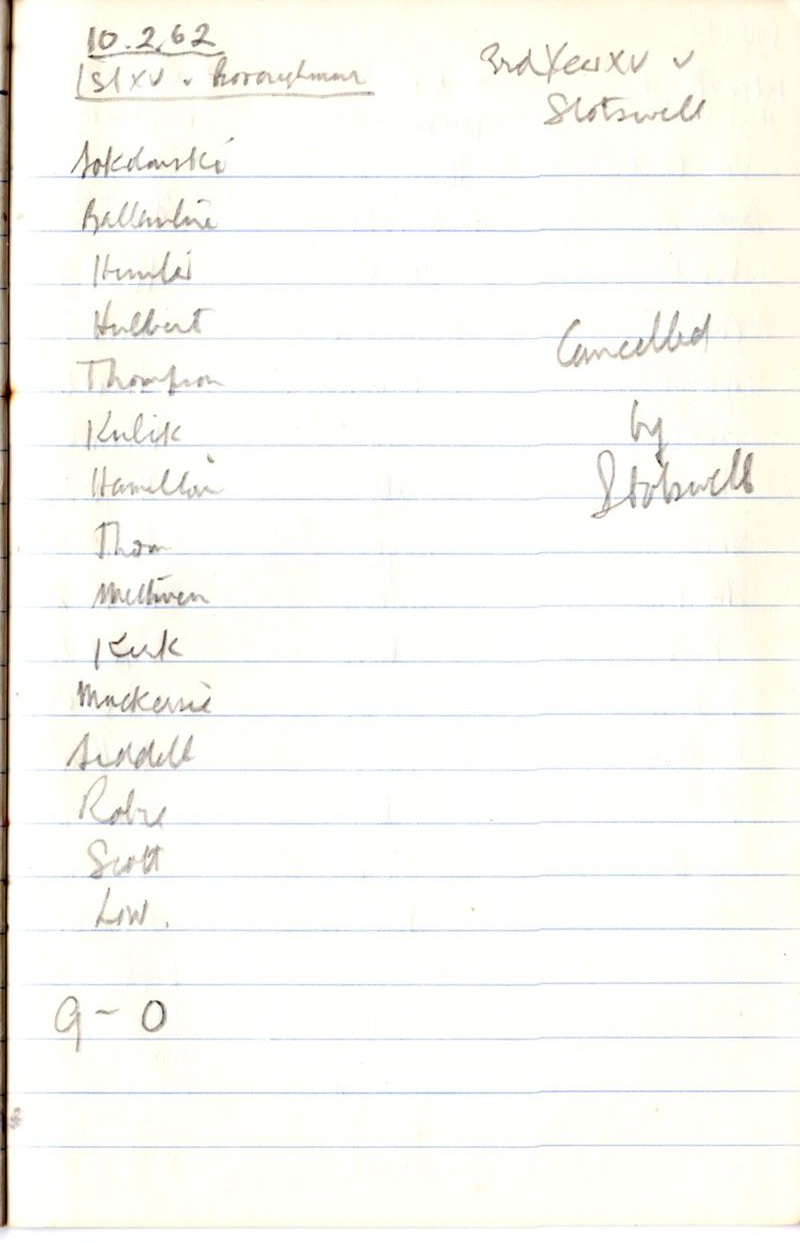 10.2.62
1st XV v Boroughmuir
Sokdowski
Ballantine
Hunter
Hulbert
Thompson
Kulik
Hamilton
Thom
Methven
Kirk
Mackenzie
Liddell
Robie
Scott
Low.
9 - 0
3rd Year XV v
Slotswell
Cancelled
by
Slotswell